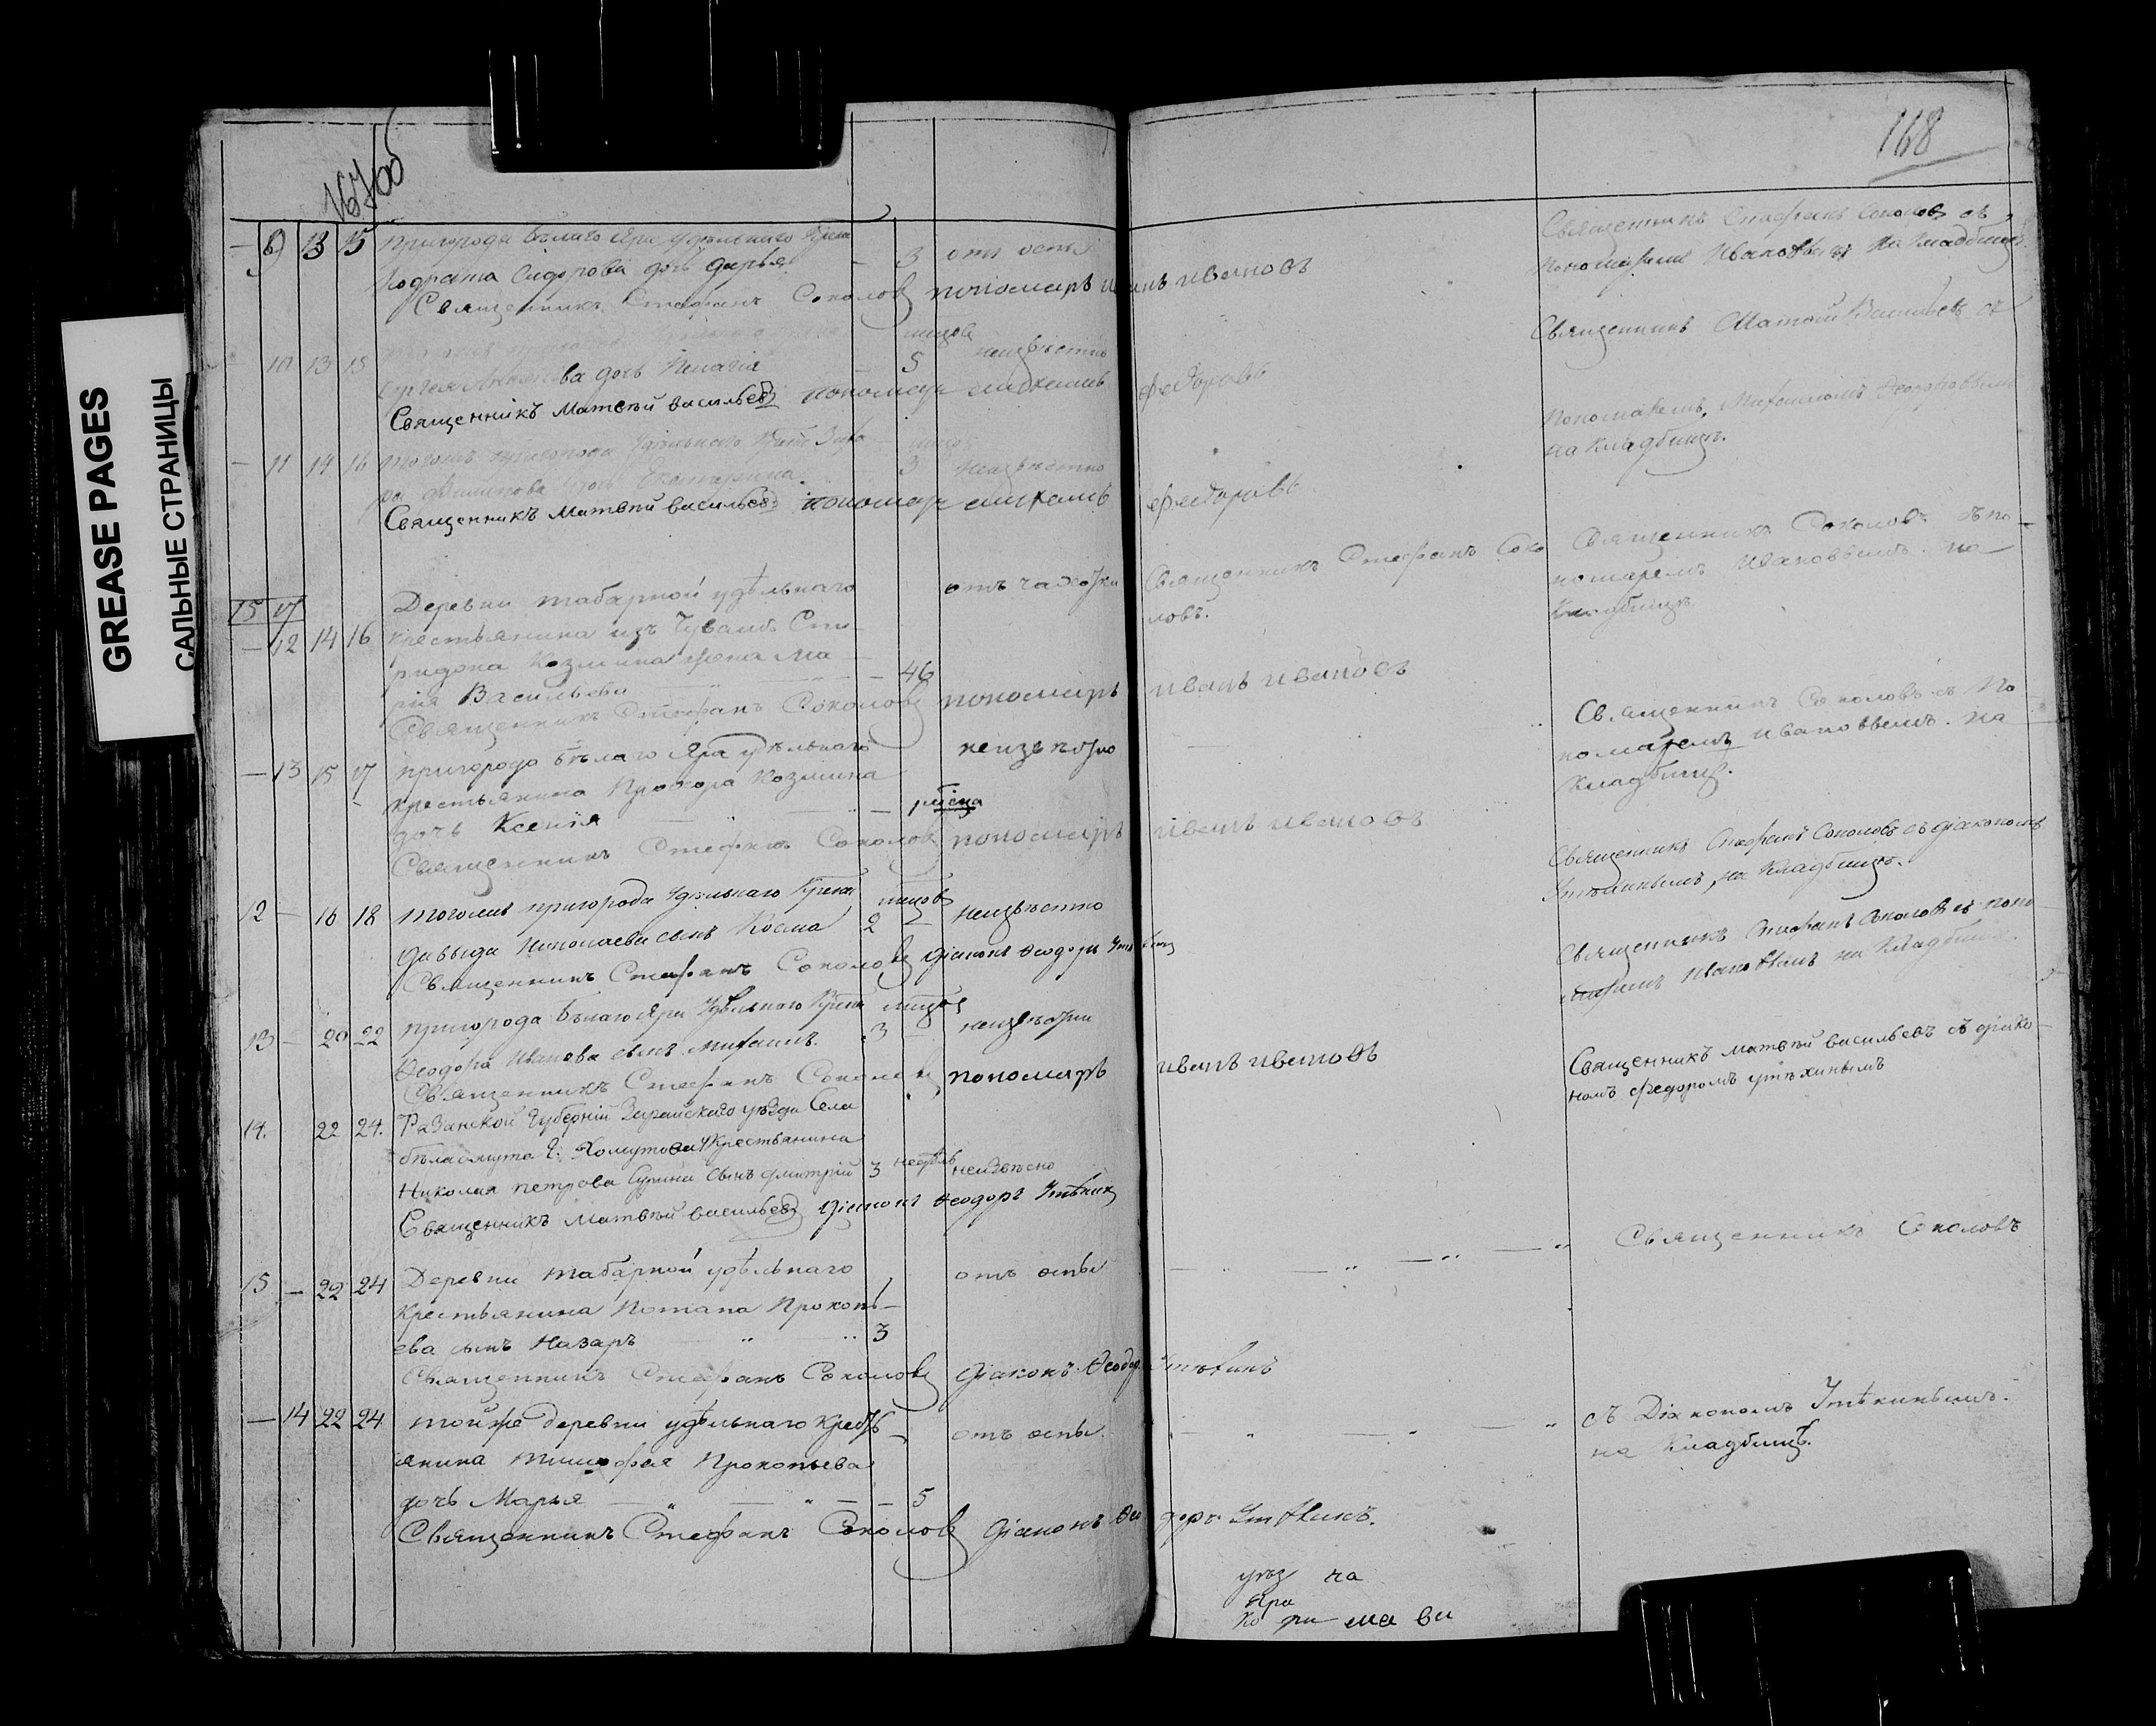 GREASE PAGES
САЛЬНЫЕ СТРАНИЦЫ
167об
168
9 13 15 Пригорода Бѣлаго Яра удѣльнаго Крест
Кодрата Сидорова дочь Дарья 3 отъ оспы
Священникъ Стефанъ Соколовъ пономарь Иванъ Ивановъ
Священникъ Стефанъ Соколовъ съ
Пономаремъ Ивановымъ на Кладбищѣ.
10 13 15
Сергея дочь Пелагія 5 неизвѣстно
Священникъ Матвѣй Васильевъ пономарь Михаилъ Федоровъ
Священникъ Матвей Васильевъ съ
Пономаремъ Михаиломъ Ѳеодоровымъ
на Кладбищѣ.
11 14 16 Тогожъ пригорода удѣльнаго Крест
дочь Екатерина 3 Неизвѣстно
Священникъ Матвѣй Васильевъ пономарь Михаилъ Федоровъ
15 17
12 14 16 Деревни табарной удѣльнаго
крестьянина изъ Чувашъ Спи-
ридона Козмина жена Ма-
рия Васильева 46
отъ чахотки
Священникъ Стефанъ Соко-
ловъ.
Священникъ Стефанъ Соколовъ пономарь Иванъ Ивановъ
Священникъ Соколовъ съ по-
номаремъ Ивановымъ на
Кладбищѣ.
13 15 17 Пригорода Бѣлаго Яра удѣльнаго неизвѣстно
крестьянина Прохора Козмина
дочь Ксенія
Священникъ Стефанъ Соколовъ пономарь Иванъ Ивановъ
Священникъ Соколовъ съ По
номаремъ Ивановымъ. на
Кладбищѣ.
12 — 16 18 Тогожъ пригорода Удѣльнаго Крест
Давыда Николаева сынъ Косма 2 неизвѣстно
Священникъ Стефанъ Соколовъ Діаконъ Ѳеодоръ Утѣхинъ
Священникъ Стефанъ Соколовъ съ діакономъ
Утѣхинымъ, на Кладбищѣ.
13 — 20 22 Пригорода Бѣлаго Яра Удѣльнаго Крест
Ѳеодора Иванова сынъ Михаилъ. 3 неизвѣстно
Священникъ Стефанъ Соколовъ пономарь Иванъ Ивановъ
Священникъ Стефанъ Соколовъ съ поно
маремъ Ивановымъ на Кладбищѣ.
14. 22 24. Разанской Губерніи Зарайскаго уѣзда Села
бѣлаомута Г: Хомутова Крестьянина
Николая Петрова сынъ Дмитрій 3 недѣль неизвѣсно
Священникъ Матвѣй Васильевъ Діаконъ Ѳеодоръ Утѣхинъ
Священникъ Матвѣй Васильевъ съ діако-
номъ Федоромъ утѣхинымъ
15 — 22 24 Деревни табарной удѣльнаго отъ оспы
крестьянина Потапа Прокопь-
ева сынъ Назаръ 3
Священникъ Стефанъ Соколовъ Діаконъ Ѳеодоръ Утѣхинъ
Священникъ Соколовъ
— 14 22 24 Тойже деревни удѣльнаго Кресть- отъ оспы
янина Тимофея Прокопьева
дочь Марья 5
Священникъ Стефанъ Соколовъ Діаконъ Ѳеодоръ Утѣхинъ.
съ Діакономъ Утѣхинымъ.
на Кладбищѣ.
на
Яра
ма ви